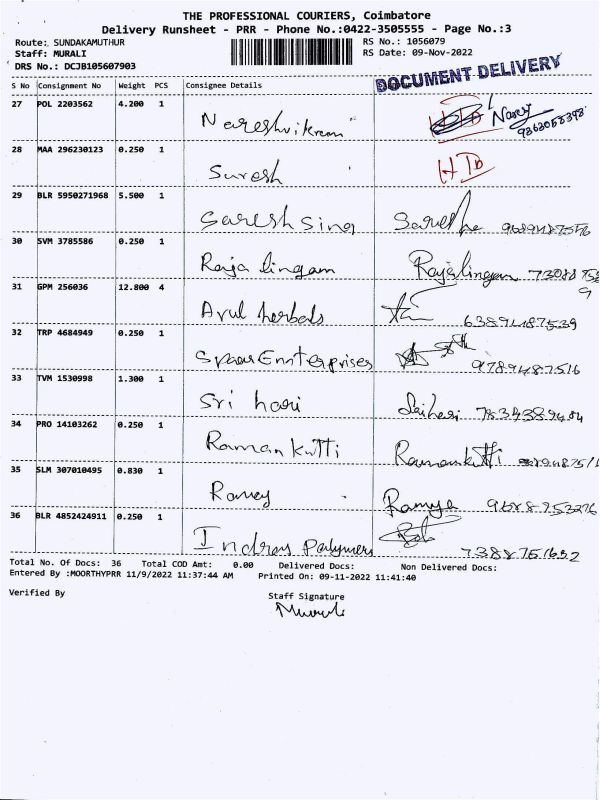 THE PROFESSIONAL COURIERS, Coimbatore
Delivery Runsheet - PRR - Phone No.:0422-3505555 - Page No.:3
Route: SUNDAKAMUTHUR RS No.: 1056079
Staff: MURALI RS Date: 09-Nov-2022
DRS No.: DCJB105607903
DOCUMENT DELIVERY
S No Consignment No Weight PCS Consignee Details
27 POL 2203562 4.200 1 Nareshvikram
28 MAA 296230123 0.250 1 Suresh HTD
29 BLR 5950271968 5.500 1 Sareshsing
30 SVM 3785586 0.250 1 Raja lingam Rajalingam
31 GPM 256036 12.800 4 Arul herbals 6389487539
32 TRP 4684949 0.250 1 Enterprises 9789487516
33 TVM 1530998 1.300 1 Sri hari
34 PRO 14103262 0.250 1 Raman kutti Ramankutti
35 SLM 307010495 0.830 1 Ramya
36 BLR 4852424911 0.250 1 Polymers
Total No. Of Docs: 36 Total COD Amt: 0.00 Delivered Docs: Non Delivered Docs:
Entered By :MOORTHYPRR 11/9/2022 11:37:44 AM Printed On: 09-11-2022 11:41:40
Verified By Staff Signature
Murali